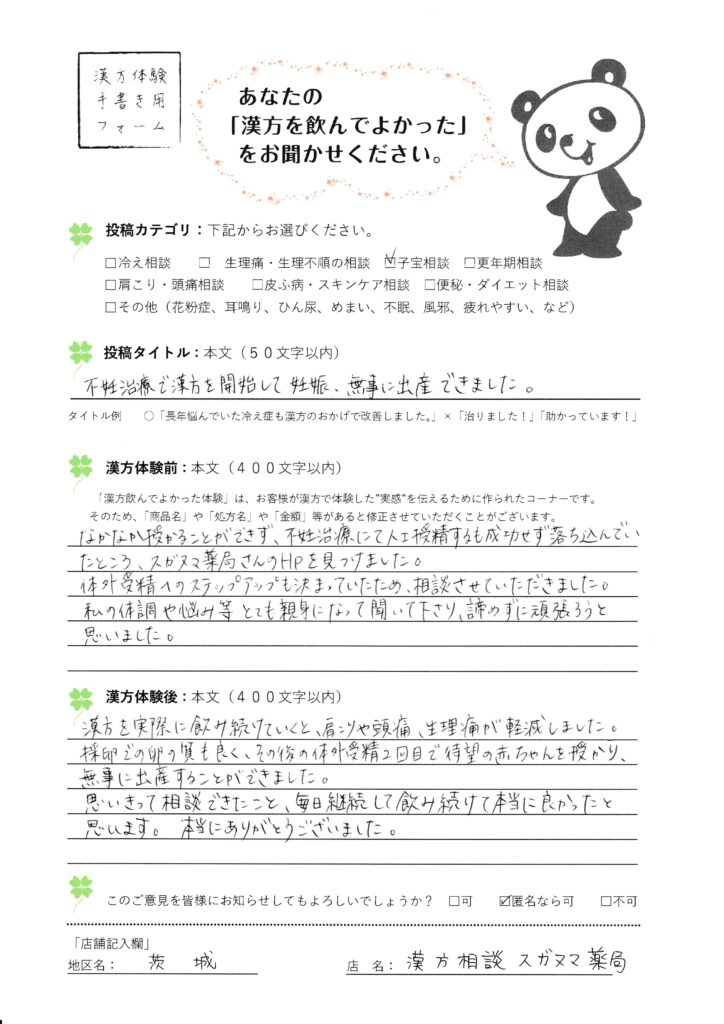 漢方体験
手書き用
フォーム
あなたの
「漢方を飲んでよかった」
をお聞かせください。
投稿カテゴリ：下記からお選びください。
□冷え相談　□　生理痛・生理不順の相談　☑子宝相談　□更年期相談
□肩こり・頭痛相談　□皮ふ病・スキンケア相談　□便秘・ダイエット相談
□その他（花粉症、耳鳴り、ひん尿、めまい、不眠、風邪、疲れやすい、など）
投稿タイトル：本文（５０文字以内）
不妊治療で漢方を開始して妊娠、無事に出産できました。
タイトル例　○「長年悩んでいた冷え症も漢方のおかげで改善しました。」×「治りました！」「助かっています！」
漢方体験前：本文（４００文字以内）
「漢方飲んでよかった体験」は、お客様が漢方で体験した"実感"を伝えるために作られたコーナーです。
そのため、「商品名」や「処方名」や「金額」等があると修正させていただくことがございます。
なかなか授かることができず、不妊治療にて人工授精するも成功せず落ち込んでい
たところ、スガヌマ薬局さんのHPを見つけました。
体外受精へのステップアップも決まっていたため、相談させていただきました。
私の体調や悩み等とても親身になって聞いて下さり、諦めずに頑張ろうと
思いました。
漢方体験後：本文（４００文字以内）
漢方を実際に飲み続けていくと、肩こりや頭痛、生理痛が軽減しました。
採卵での卵の質も良く、その後の体外受精2回目で待望の赤ちゃんを授かり、
無事に出産することができました。
思いきって相談できたこと、毎日継続して飲み続けて本当に良かったと
思います。　本当にありがとうございました。
このご意見を皆様にお知らせしてもよろしいでしょうか？　□可　☑匿名なら可　□不可
「店舗記入欄」
地区名：　茨城　店　名：漢方相談 スガヌマ薬局